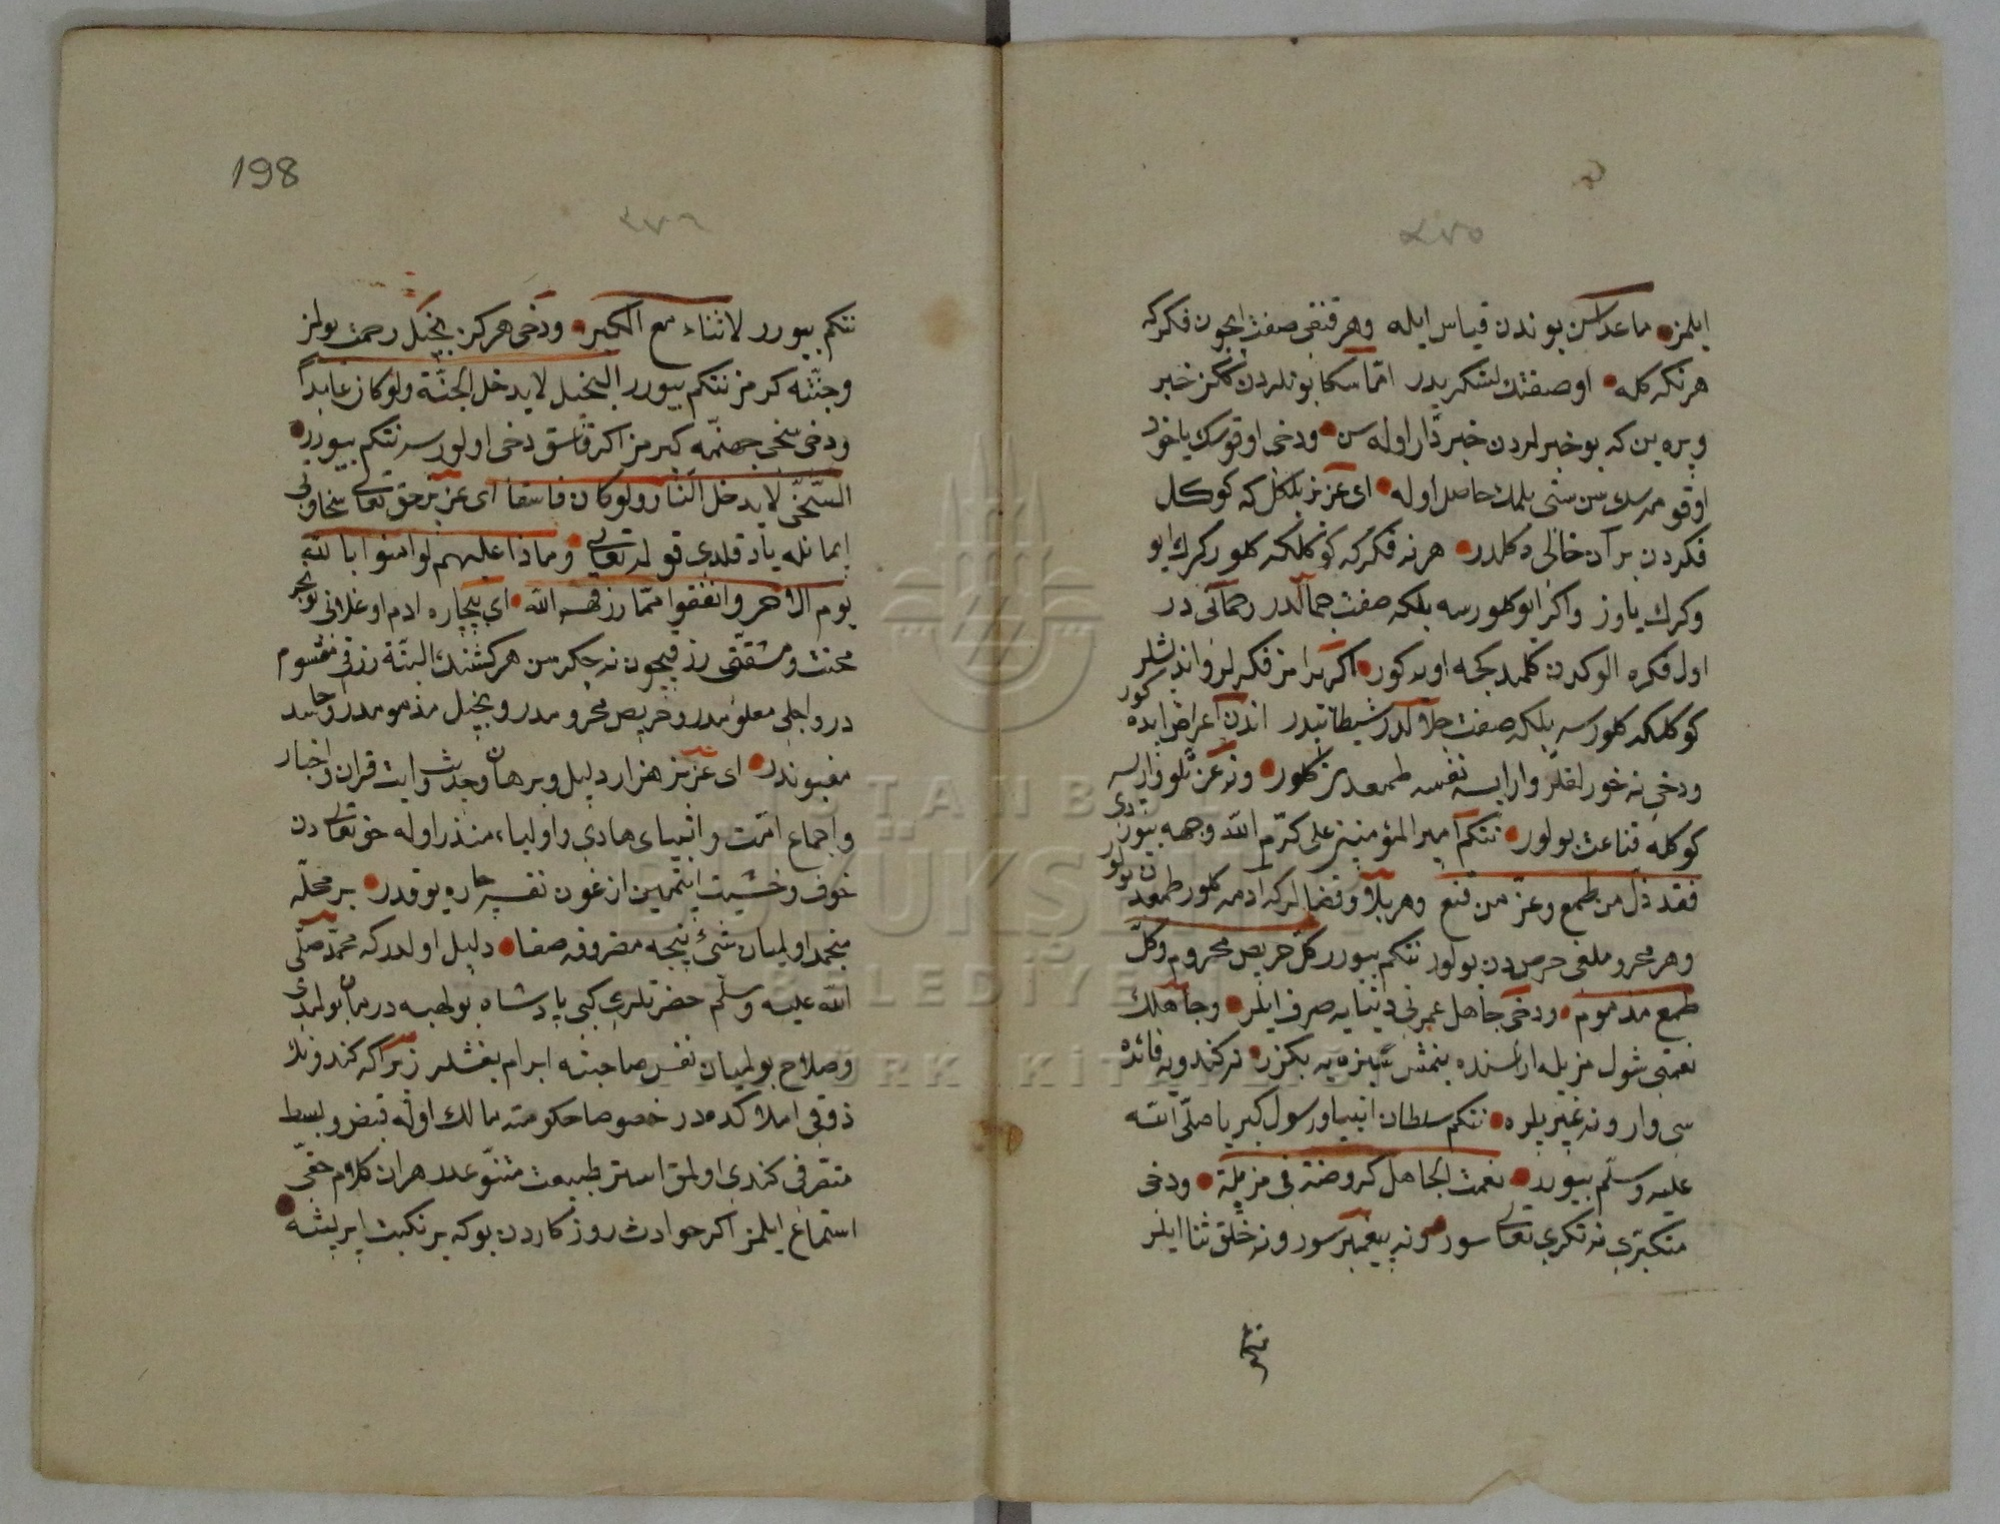 ٤٧٥
ايلمز ماعداسن بوندن قياس ايله وهر قنقى صفت ايچون فكر كه
هر نكه كله اوصفتك لشكريدر امّا سكا بونلردن خبر
ويره ين كه بو خبرلردن خبردار اوله سن ودخى اوقوسك ياخود
اوقومسك سن سنى بلمك حاصل اوله اى عزيز بلكل كه كوكل
فكردن بر آن خالى دكلدر هر نه فكر كه كوكلكه كلور كرك ايو
وكرك ياوز واكر ايو كلورسه بلكه صفت جمالدر رحمانى در
اول فكره الوكدن كلمدكجه اوله كور اكر يرامز فكرلر وانديشلر
كوكلكه كلورسه بلكه صفت جلالدر شيطانيدر اندن اعراض ايده كور
ودخى نه خورلقلر وارايسه نفسه طمعدن كلور ونه عزّتلو وارسه
كوكله قناعت بولور نتكم امير المؤمنين على كرّم الله وجهه بيوردى
فقد ذلّ من طمع وعزّ من قنع وهر بلا وقضالر كه ادمه كلور طمعدن بولور
وهر محروملغى حرصدن بولور نتكم بيورر كلّ حريص محروم وكلّ
طمع مذموم ودخى جاهل عمرنى دنيايه صرف ايلر وجاهلك
نعمتى شول مزبله ارسنده بتمش سبزه يه بكزر نه كندويه فائده
سى وار ونه غيريلره نتكم سلطان انبيا ورسول كبريا صلّى الله
عليه وسلّم بيورر نعمت الجاهل كروضة فى مزبلة ودخى
متكبرى نه تكرى تعالى سور ونه پيغمبر سور ونه خلق ثنا ايلر
نتكم
198
٤٧٦
نتكم بيورر لا ثناء مع الكبر ودخى هر كز بخيل رحمت بولمز
وجنّته كرمز نتكم بيورر البخيل لا يدخل الجنّة ولو كان عابداً
ودخى سخى جهنّمه كيرمز اكر فاسق دخى اولورسه نتكم بيورر
السّخى لا يدخل النّار ولو كان فاسقا اى عزيز حق تعالى سخاوتى
ايمانله ياد قلدى قوله تعالى وماذا عليهم لو امنوا بالله
يوم الاخر وانفقوا ممّا رزقهم الله اى بيچاره ادم اوغلانى بونجه
محنت ومشقّتى رزقيچون نه چكرسن هر كشنك البتّه رزقى مقسوم
در واجلى معلومدر وحريص محرومدر وبخيل مذمومدر وحاسد
مغبوندر اى عزيز هزار دليل وبرهان وحديث وايت قران واخبار
واجماع امّت وانبياى هادى واولياء منذر اوله حق تعالى دن
خوف وخشيت ايتمين ازغون نفسه چاره يوقدر بر محلّه
منجمد اولميان شئ نيجه مصروفه صفا دليل اولدر كه محمّد صلّى
الله عليه وسلّم حضرتلرى كبى پادشاه بولهبه درمان بولمدى
وصلاح بولميان نفس صاحبنه ابرام بغشدر زيرا كه كندونك
ذوقى املاكده در خصوصا حكومته مالك اوله قبض وبسط
متصرفى كندى اولمق استر طبيعت متنوّعدر هر ان كلام حقّى
استماع ايلمز اكر حوادث روزكاردن بوكه بر نكبت ايريشه